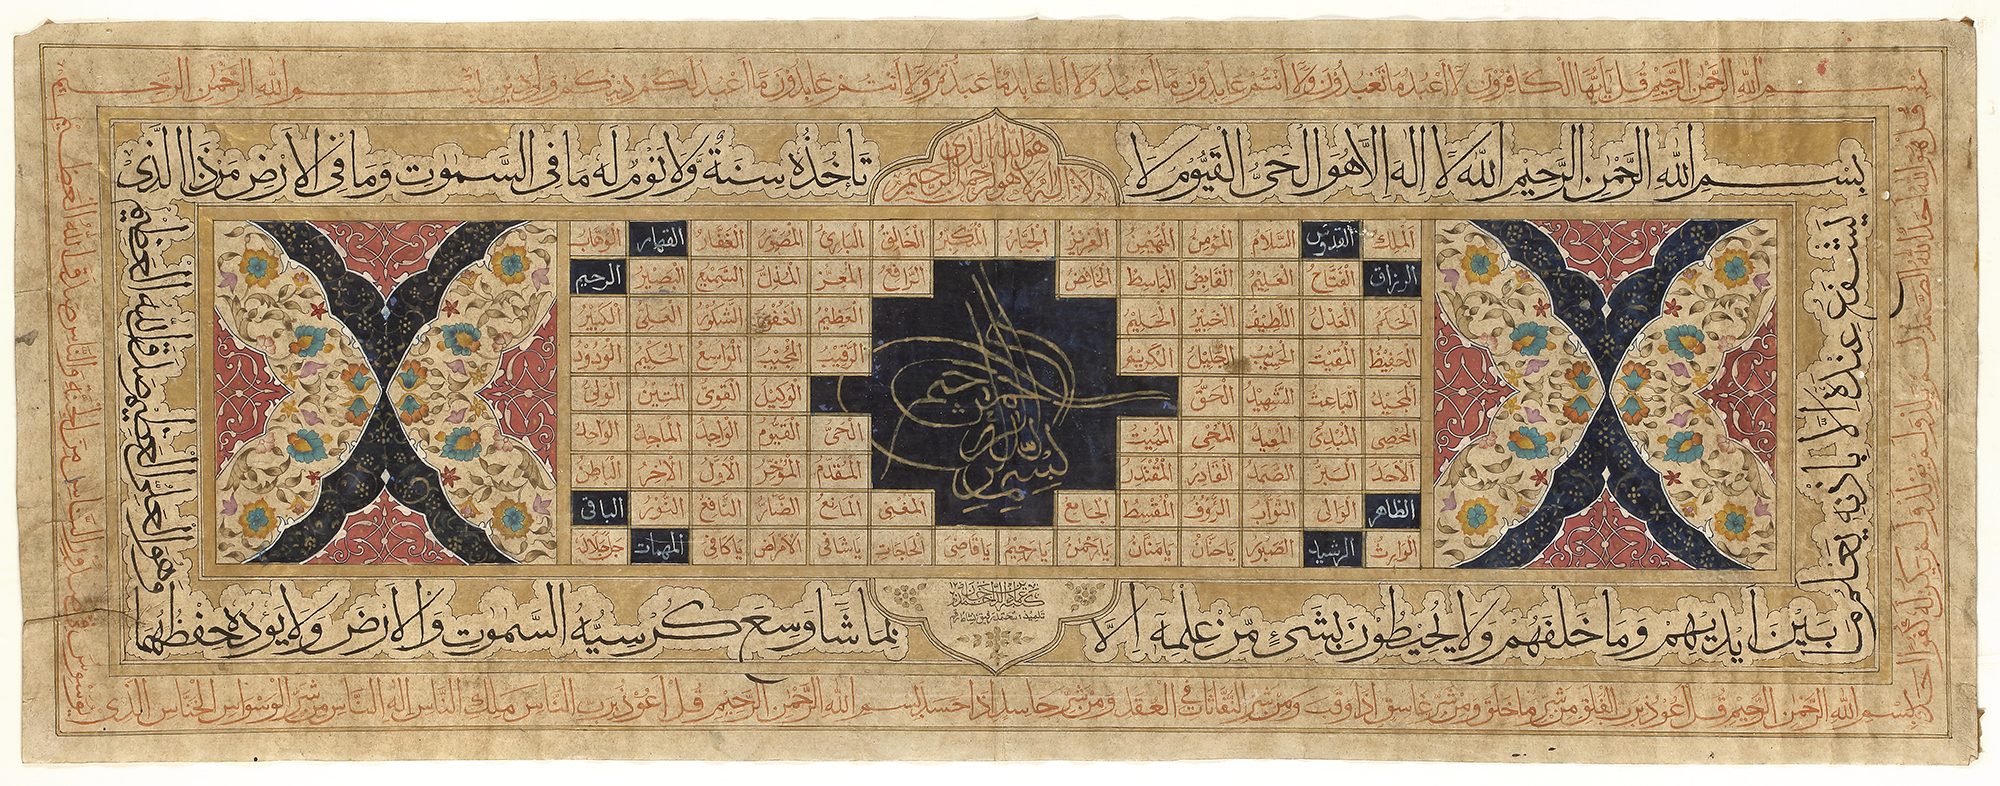 بسم الله الرحمن الرحيم قل يا أيها الكافرون لا أعبد ما تعبدون ولا أنتم عابدون ما أعبد ولا أنا عابد ما عبدتم ولا أنتم عابدون ما أعبد لكم دينكم ولي دين بسم الله الرحمن الرحيم
قل هو الله احد الله الصمد لم يلد ولم يولد ولم يكن له كفوا احد
بسم الله الرحمن الرحيم قل اعوذ برب الفلق من شر ما خلق ومن شر غاسق اذا وقب ومن شر النفاثات في العقد ومن شر حاسد اذا حسد بسم الله الرحمن الرحيم قل اعوذ برب الناس ملك الناس اله الناس من شر الوسواس الخناس الذي
يوسوس في صدور الناس من الجنة والناس صدق الله العظيم
بسم الله الرحمن الرحيم الله لا اله الا هو الحي القيوم لا
تأخذه سنة ولا نوم له ما في السموت وما في الارض من ذا الذي
يشفع عنده الا باذنه يعلم ما
بين ايديهم وما خلفهم ولا يحيطون بشئ من علمه الا
بما شا وسع كرسيه السموت والارض ولا يوده حفظهما
وهو العلي العظيم صدق الله العظيم
هو الله الذي
لا اله الا هو الرحمن الرحيم
الملك القدوس السلام المؤمن المهيمن العزيز الجبار المتكبر الخالق البارئ المصور الغفار القهار الوهاب
الرزاق الفتاح العليم القابض الباسط الخافض الرافع المعز المذل السميع البصير الرحيم
الحكم العدل اللطيف الخبير الحليم العظيم الغفور الشكور العلي الكبير
الحفيظ المقيت الحسيب الجليل الكريم الرقيب المجيب الواسع الحكيم الودود
المجيد الباعث الشهيد الحق الوكيل القوي المتين الولي
المحصي المبدئ المعيد المحيي المميت الحي القيوم الواجد الماجد الواحد
الاحد البر الصمد القادر المقتدر المقدم المؤخر الاول الاخر الباطن
الظاهر الوالي التواب الرؤف المقسط الجامع المغني المانع الضار النافع النور الباقي
الوارث الرشيد الصبور يا حنان يا منان يا رحمن يا رحيم يا قاضي الحاجات يا شافي الامراض يا كافي المهمات جل جلاله
بسم الله الرحمن الرحيم